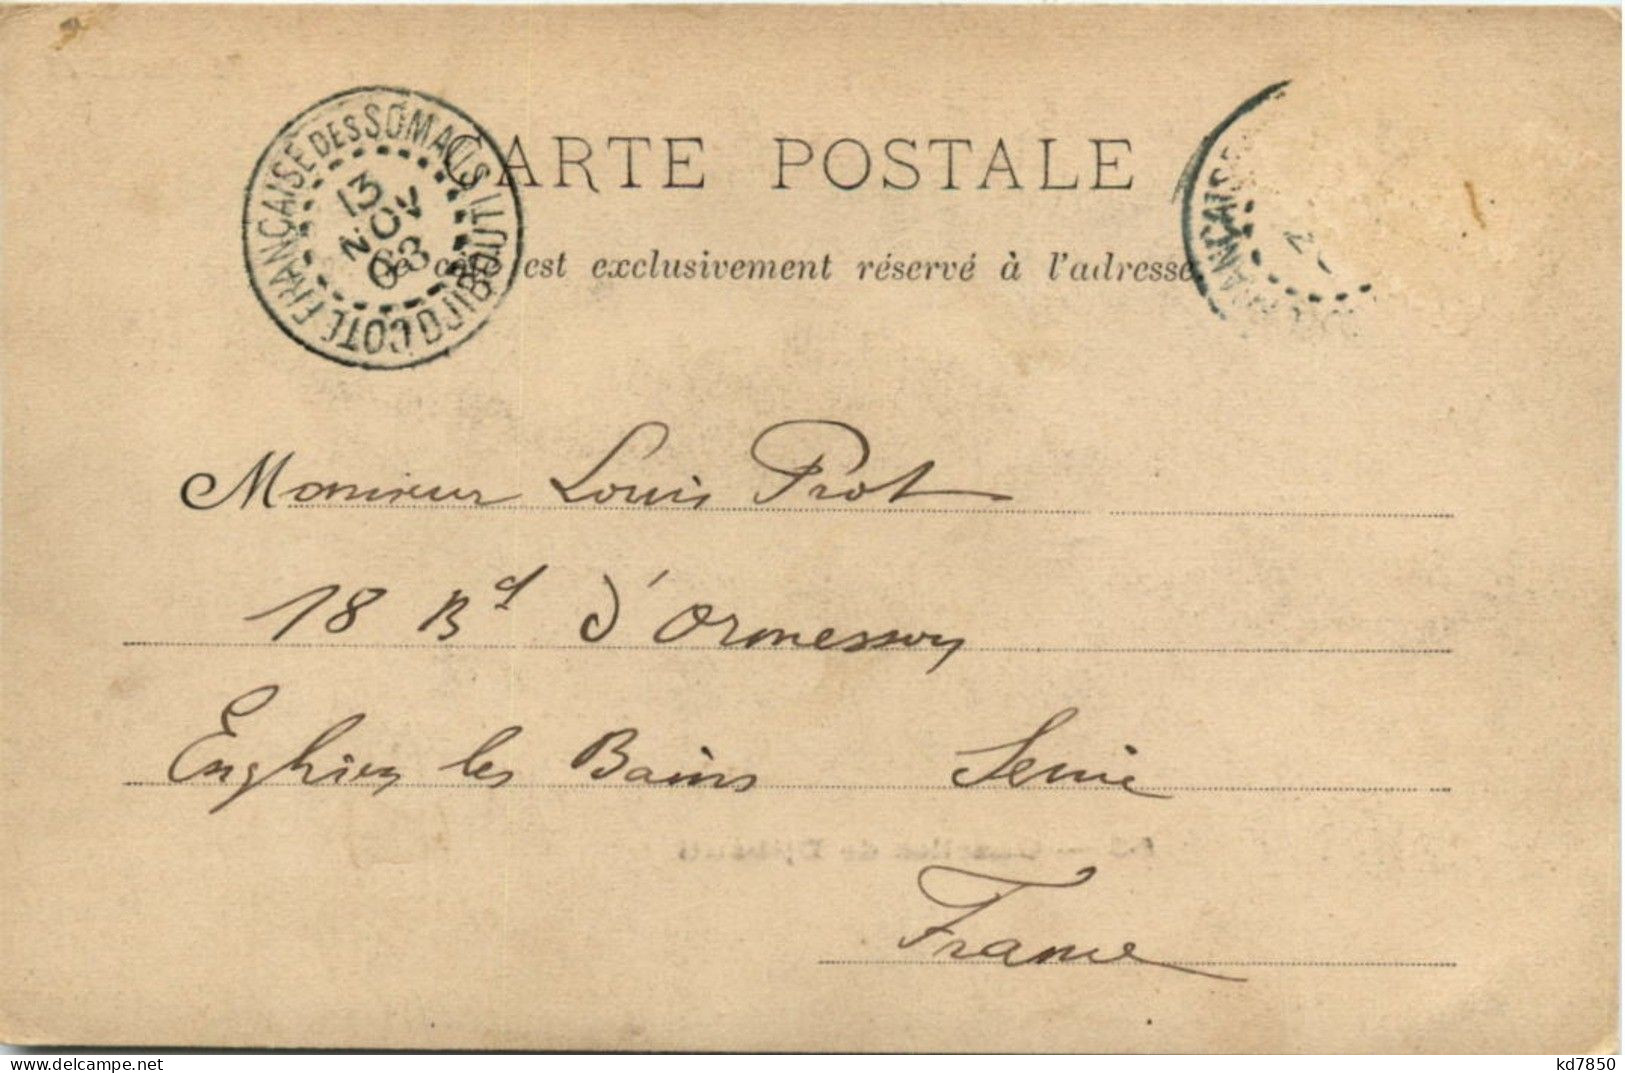 CARTE POSTALE
Ce côté est exclusivement réservé à l'adresse
COTE FRANÇAISE DES SOMALIS DJIBOUTI
13
NOV
03
ANÇAISE
Monsieur Louis Prot
18 Bd d'Ormesson
Enghien les Bains Seine
France
delcampe.net
kd7850